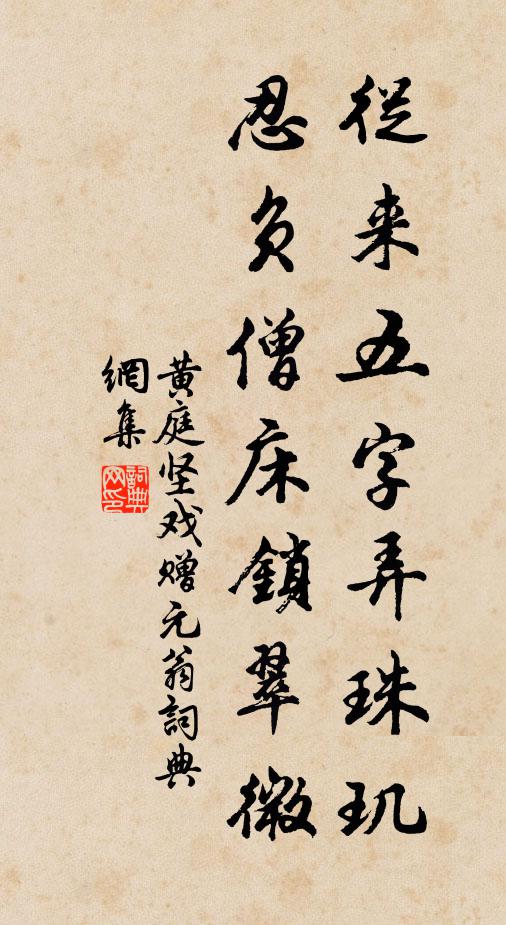 從来五字弄珠玑
忍负僧床鎖翠微
黄庭坚戏赠元翁詞典
網集
詞典网印